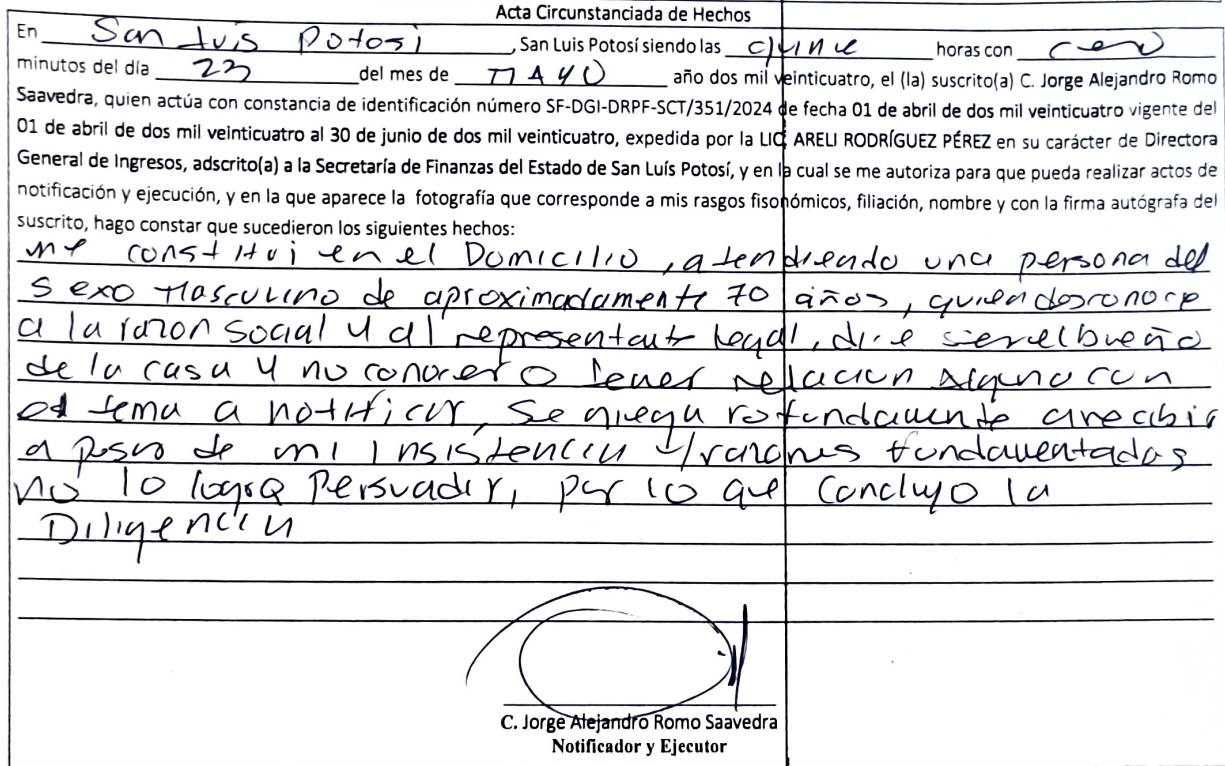 Acta Circunstanciada de Hechos
En San Luis Potosi, San Luis Potosí siendo las quince horas con cero
minutos del día 23 del mes de MAYO año dos mil veinticuatro, el (la) suscrito(a) C. Jorge Alejandro Romo
Saavedra, quien actúa con constancia de identificación número SF-DGI-DRPF-SCT/351/2024 de fecha 01 de abril de dos mil veinticuatro vigente del
01 de abril de dos mil veinticuatro al 30 de junio de dos mil veinticuatro, expedida por la LIC ARELI RODRÍGUEZ PÉREZ en su carácter de Directora
General de Ingresos, adscrito(a) a la Secretaría de Finanzas del Estado de San Luís Potosí, y en la cual se me autoriza para que pueda realizar actos de
notificación y ejecución, y en la que aparece la fotografía que corresponde a mis rasgos fisonómicos, filiación, nombre y con la firma autógrafa del
suscrito, hago constar que sucedieron los siguientes hechos:
me constitui en el Domicilio, atendiendo una persona del
sexo Masculino de aproximadamente 70 años, quien desconoce
a la razon social y al representante legal, dice ser el dueño
de la casa y no conocer o tener relacion alguna con
el tema a notificar, se niega rotundamente a recibir
a pesar de mi insistencia y razones fundamentadas
no lo logro Persuadir, por lo que Concluyo la
Diligencia
C. Jorge Alejandro Romo Saavedra
Notificador y Ejecutor